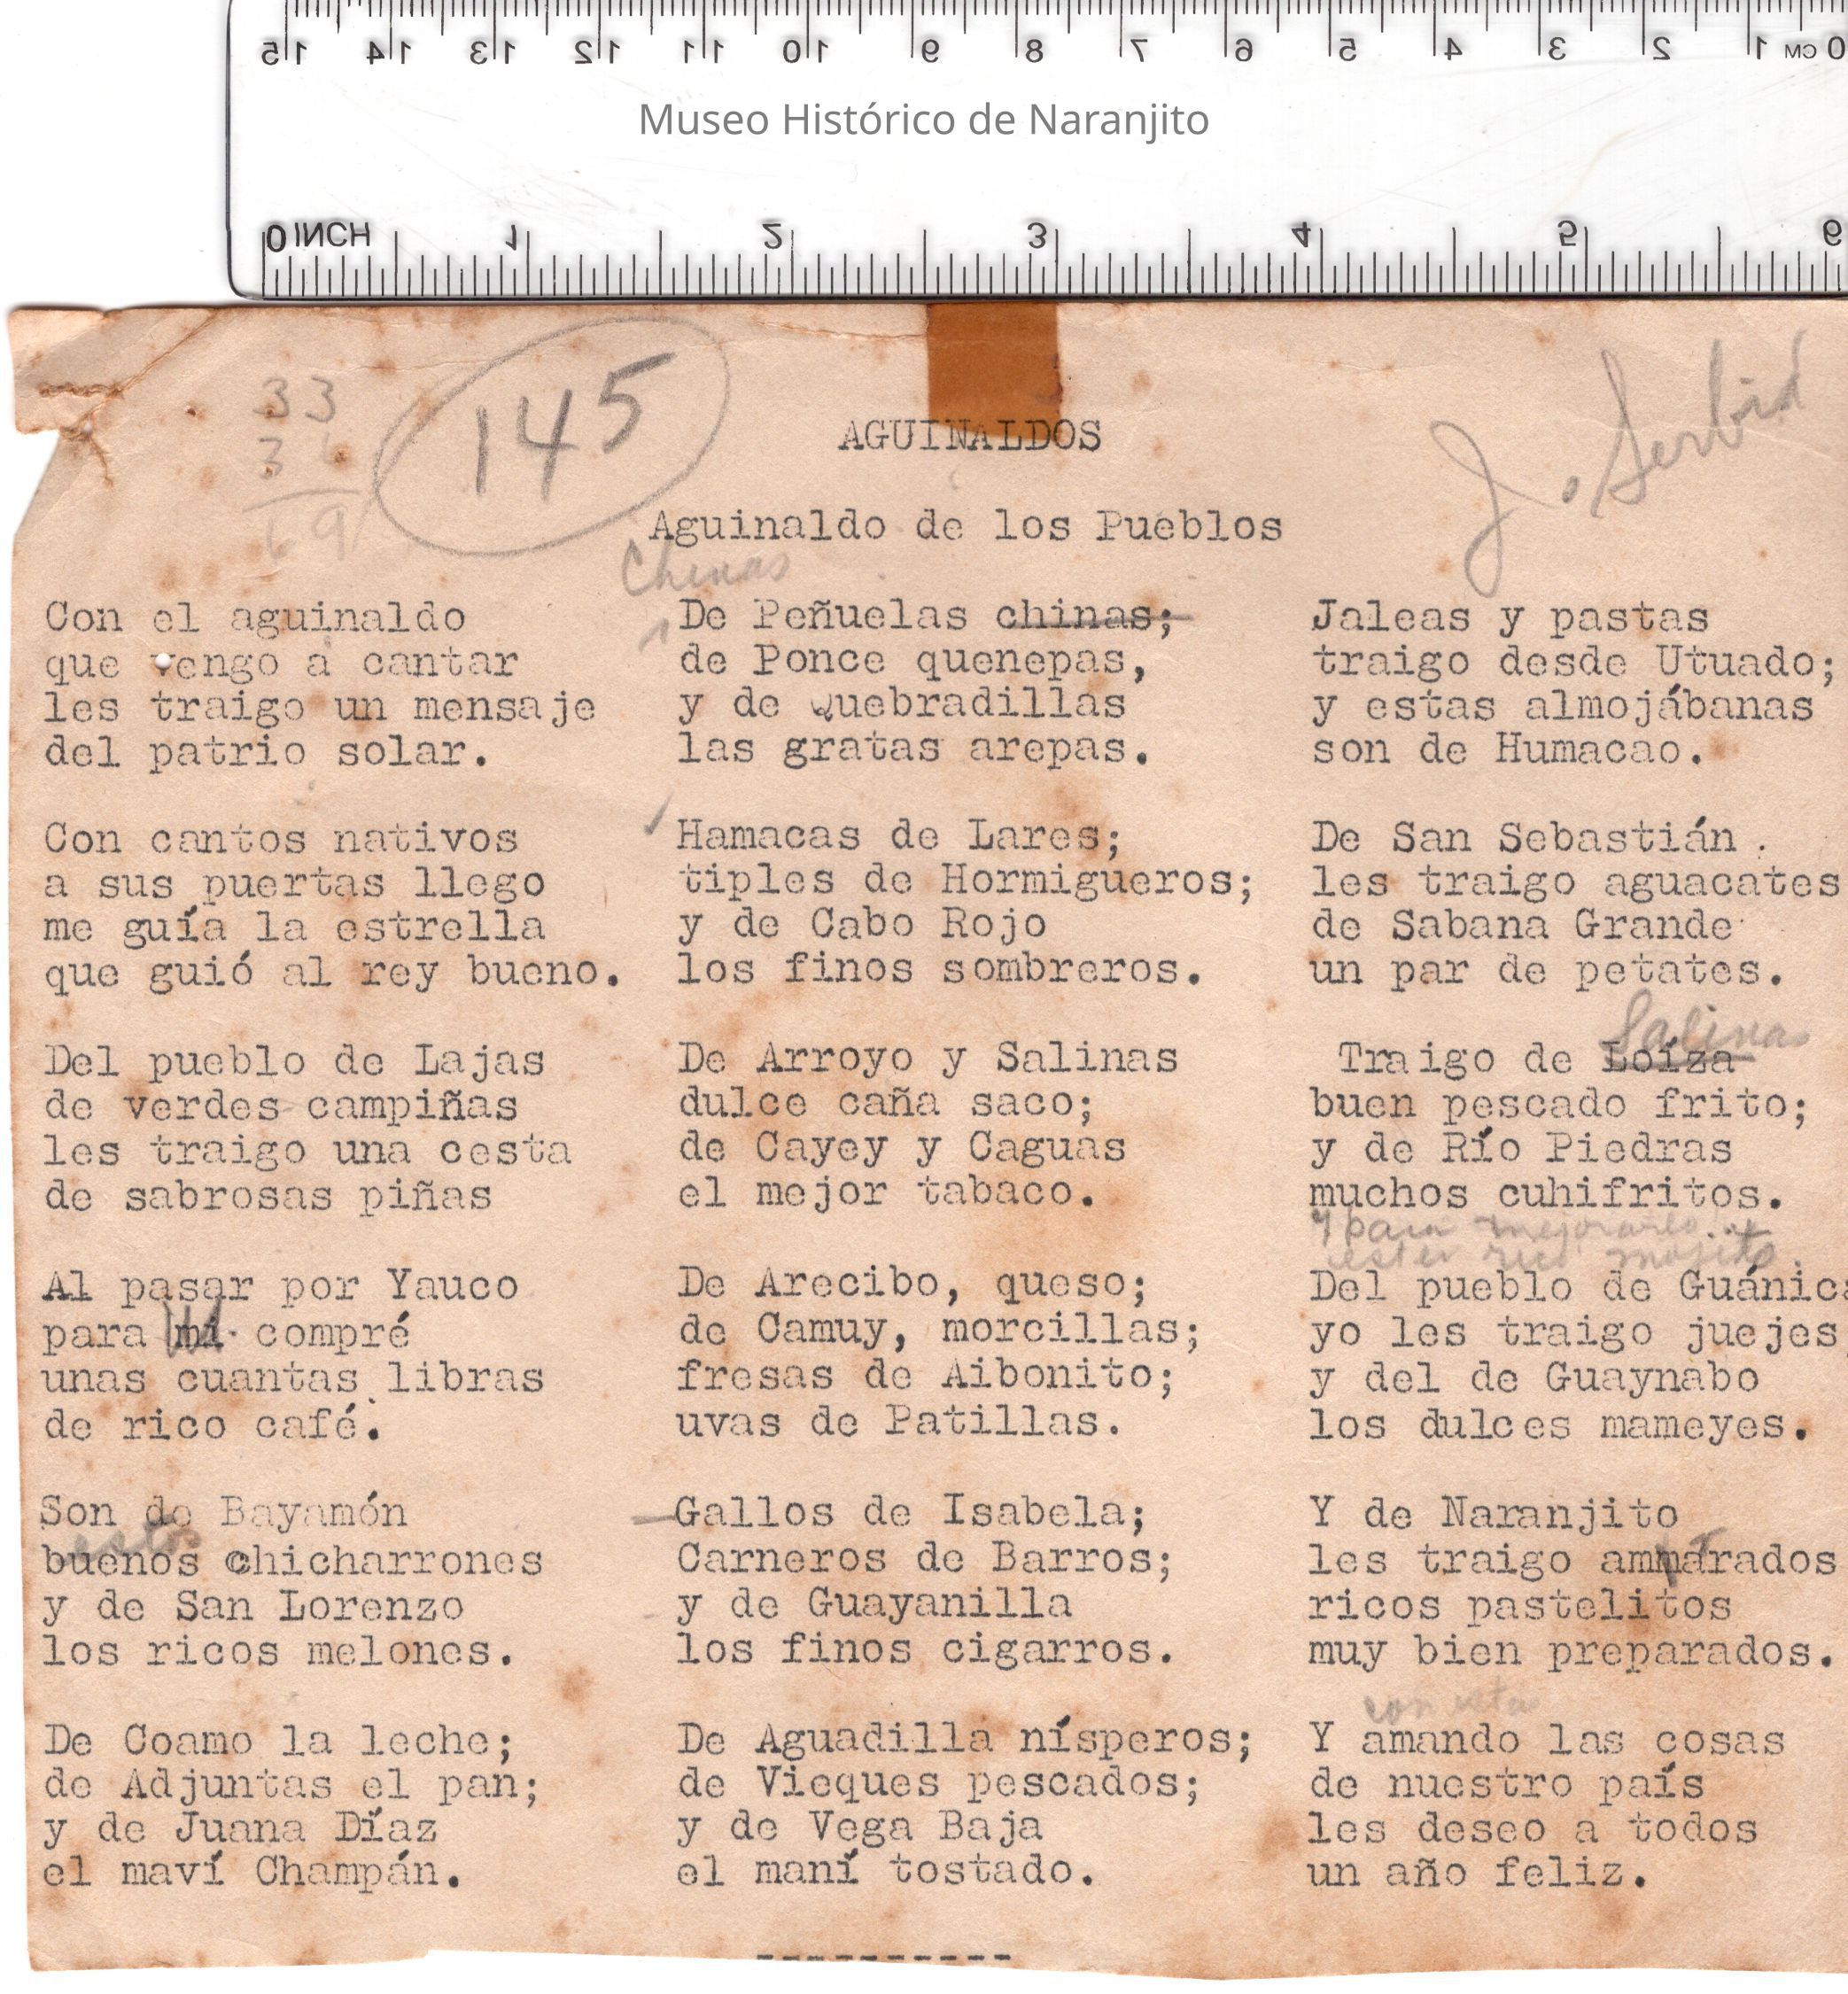 15 14 13 12 11 10 9 8 7 6 5 4 3 2 1 CM 0
Museo Histórico de Naranjito
0 INCH 1 2 3 4 5 6
33
36
69
145
J. Serbiá
AGUINALDOS
Aguinaldo de los Pueblos
Con el aguinaldo
que vengo a cantar
les traigo un mensaje
del patrio solar.
Con cantos nativos
a sus puertas llego
me guía la estrella
que guió al rey bueno.
Del pueblo de Lajas
de verdes campiñas
les traigo una cesta
de sabrosas piñas
Al pasar por Yauco
para mi compré
unas cuantas libras
de rico café.
Son de Bayamón
estos
buenos chicharrones
y de San Lorenzo
los ricos melones.
De Coamo la leche;
de Adjuntas el pan;
y de Juana Díaz
el maví Champán.
Chinas
De Peñuelas chinas;
de Ponce quenepas,
y de Quebradillas
las gratas arepas.
Hamacas de Lares;
tiples de Hormigueros;
y de Cabo Rojo
los finos sombreros.
De Arroyo y Salinas
dulce caña saco;
de Cayey y Caguas
el mejor tabaco.
De Arecibo, queso;
de Camuy, morcillas;
fresas de Aibonito;
uvas de Patillas.
Gallos de Isabela;
Carneros de Barros;
y de Guayanilla
los finos cigarros.
De Aguadilla nísperos;
de Vieques pescados;
y de Vega Baja
el maní tostado.
Jaleas y pastas
traigo desde Utuado;
y estas almojábanas
son de Humacao.
De San Sebastián.
les traigo aguacates
de Sabana Grande
un par de petates.
Salinas
Traigo de Loíza
buen pescado frito;
y de Río Piedras
muchos cuhifritos.
y para mejorarlo
este rico mojito.
Del pueblo de Guánica
yo les traigo juejes,
y del de Guaynabo
los dulces mameyes.
Y de Naranjito
les traigo ammarados
ricos pastelitos
muy bien preparados.
Y amando las cosas
de nuestro país
les deseo a todos
un año feliz.
----------